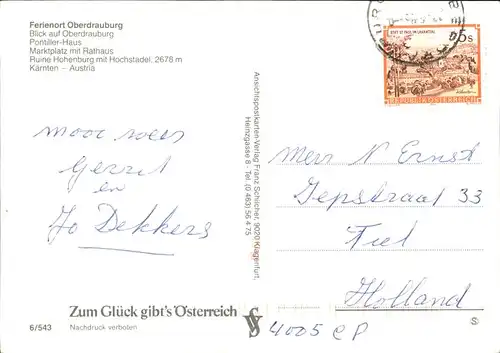 Ferienort Oberdrauburg
Blick auf Oberdrauburg
Pontiller-Haus
Marktplatz mit Rathaus
Ruine Hohenburg mit Hochstadel, 2678 m
Kärnten – Austria
mooi
Gerrit
en
Jo Dekkers
Zum Glück gibt's Österreich
6/543
Nachdruck verboten
Ansichtspostkarten-Verlag Franz Schilcher, 9020 Klagenfurt,
Heinzgasse 8 · Tel. (0 463) 56 4 75
5s
STIFT ST. PAUL IM LAVANTTAL
REPUBLIK ÖSTERREICH
N Ernst
Gepstraat 33
Tiel
Holland
4005 CP